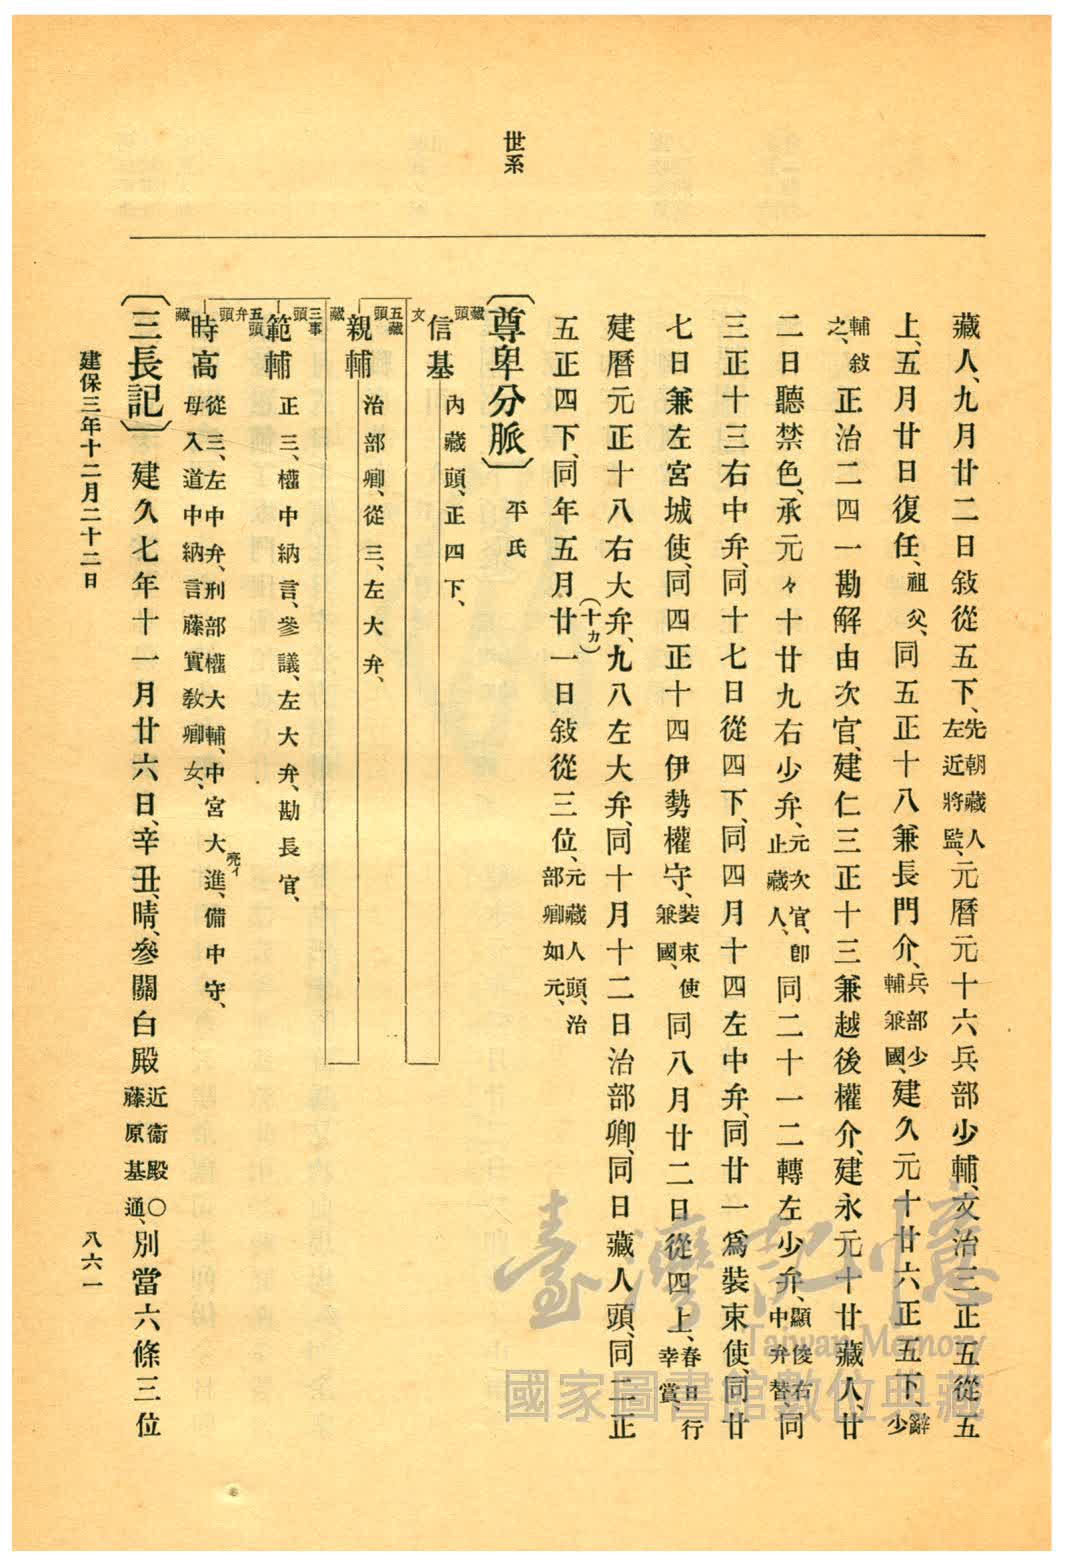 世系
藏人、九月廿二日敍從五下、先朝藏人左近將監、元曆元十六兵部少輔、文治三正五從五
上、五月廿日復任、祖父、同五正十八兼長門介、兵部少輔兼國、建久元十廿六正五下、辭少
輔敍之、正治二四一勘解由次官、建仁三正十三兼越後權介、建永元十廿藏人、廿
二日聽禁色、承元々十廿九右少弁、元次官、卽止藏人、同二十一二轉左少弁、顯俊右中弁替、同
三正十三右中弁、同十七日從四下、同四月十四左中弁、同廿一爲裝束使、同廿
七日兼左宮城使、同四正十四伊勢權守、裝束使兼國、同八月廿二日從四上、春日行幸賞、
建曆元正十八右大弁、九(十カ)八左大弁、同十月十二日治部卿、同日藏人頭、同二正
五正四下、同年五月廿一日敍從三位、元藏人頭、治部卿如元、
〔尊卑分脈〕 平氏
藏頭
文
信基 內藏頭、正四下、
五藏頭
藏
親輔 治部卿、從三、左大弁、
三事頭
範輔 正三、權中納言、參議、左大弁、勘長官、
五弁頭
頭
藏
時高 從三、左中弁、刑部權大輔、中宮大進、亮イ備中守、
母入道中納言藤實敎卿女、
〔三長記〕 建久七年十一月廿六日、辛丑、晴、參關白殿近衞殿○藤原基通、別當六條三位
建保三年十二月二十二日
八六一
臺灣記憶
Taiwan Memory
國家圖書館數位典藏